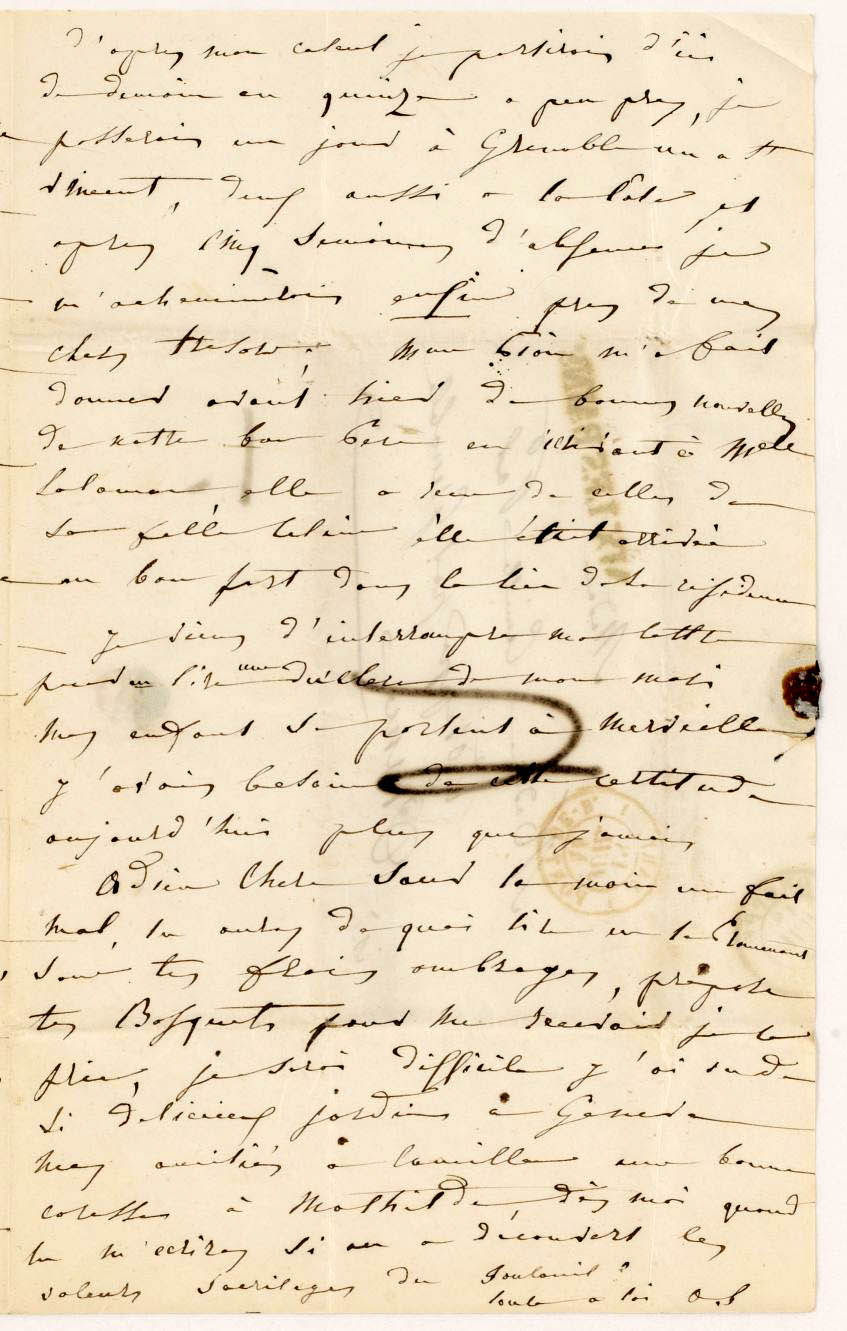 d'apres mon calcul je partirois d'ici
de demain en quinze a peu pres, je
passerais un jour à Grenoble un a St
vincent, deux aussi a la Côte et
apres cinq semaines d'absence je
m'acheminerois enfin pres de mes
chers tresors. Mon Père m'a fait
donner avant hier de bonnes nouvelles
de notre bon Pere en écrivant à Melle
Salomon elle a recu de celles de
sa fille Celine elle était arrivée
au bon port dans le lieu de sa residence
je viens d'interrompre ma lettre
pour en lire une de de mon mari
mes enfant se portent à merveille
j'avois besoin de cette certitude
aujourd'hui plus que jamais
Adieu Chere Soeur la main me fait
mal, tu auras de quoi lire en te promenant
sous tes frais ombrages, prepare
tes Bosquets pour me recevoir je te
prie, je serai difficile j'ai vu de
si delicieux jardins a Geneve
mes amitiés a Camille une bonne
caresse à Mathilde, dis moi quand
tu m'ecriras si on a découvert les
voleurs sacrileges du
toute a toi